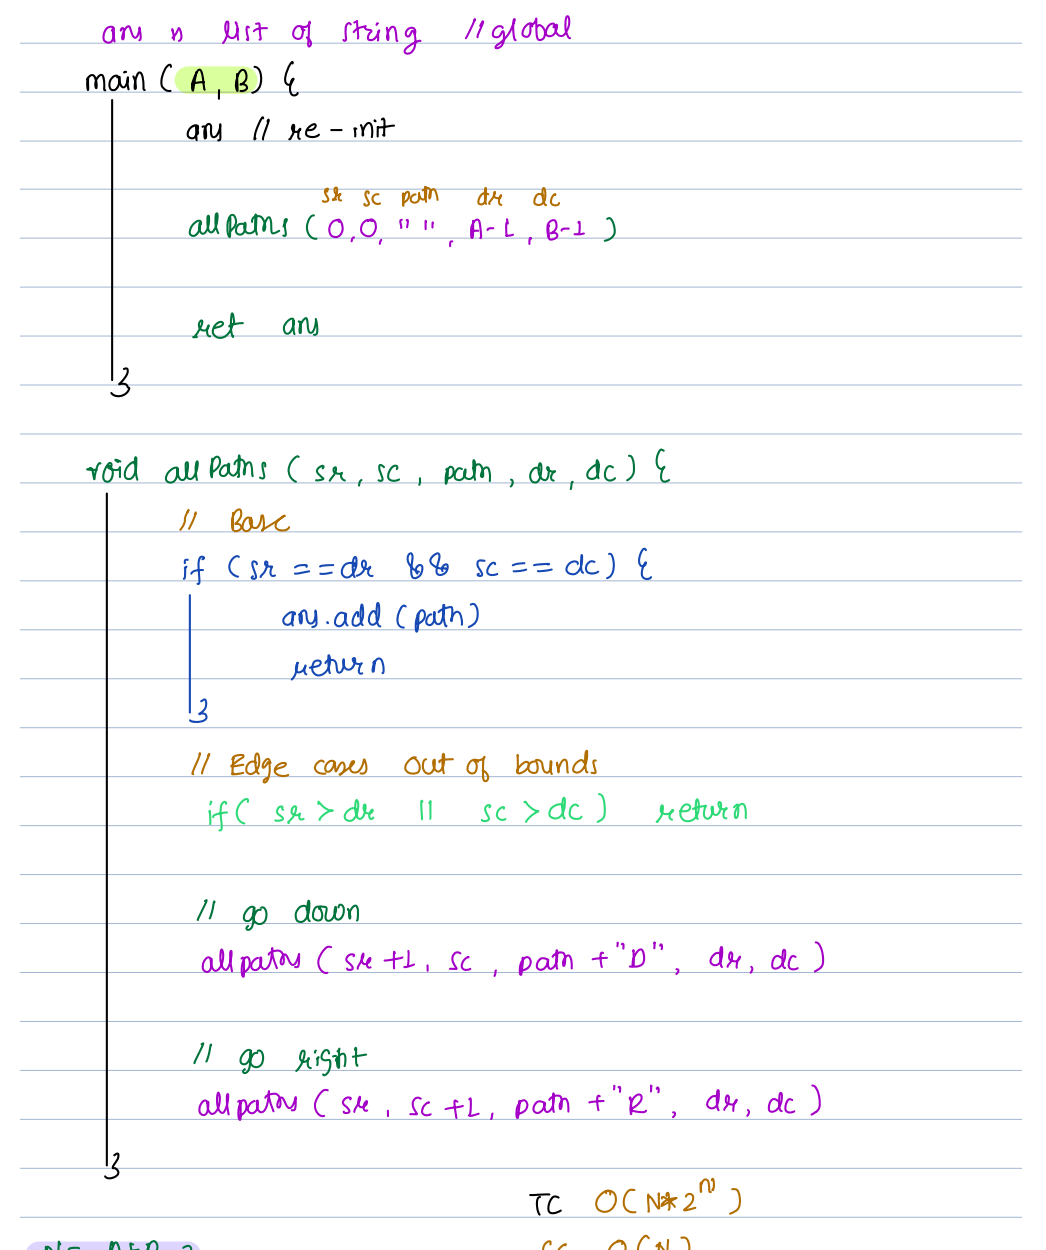 ans is list of string // global
main ( A, B) {
ans // re-init
sr sc path dr dc
allPaths ( 0,0, " ", A-1, B-1 )
ret ans
}
void allPaths ( sr, sc, path, dr, dc) {
// Base
if (sr == dr && sc == dc) {
ans.add (path)
return
}
// Edge cases out of bounds
if( sr > dr || sc > dc) return
// go down
allpaths ( sr +1, sc, path + "D", dr, dc )
// go right
allpaths ( sr, sc +1, path + "R", dr, dc )
}
TC O( N*2^N )